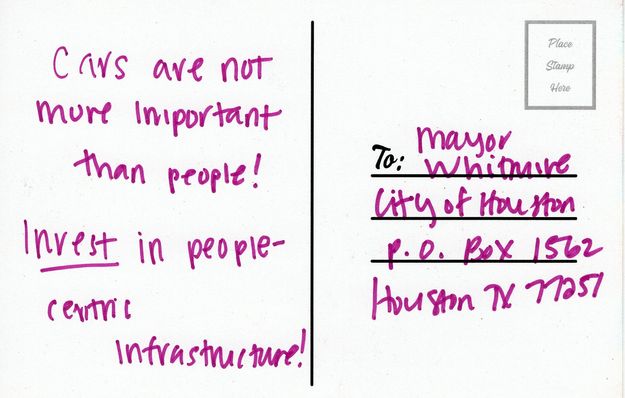 Cars are not
more important
than people!
Invest in people-
centric
infrastructure!
Place
Stamp
Here
To: Mayor
Whitmire
City of Houston
P.O. Box 1562
Houston TX 77251